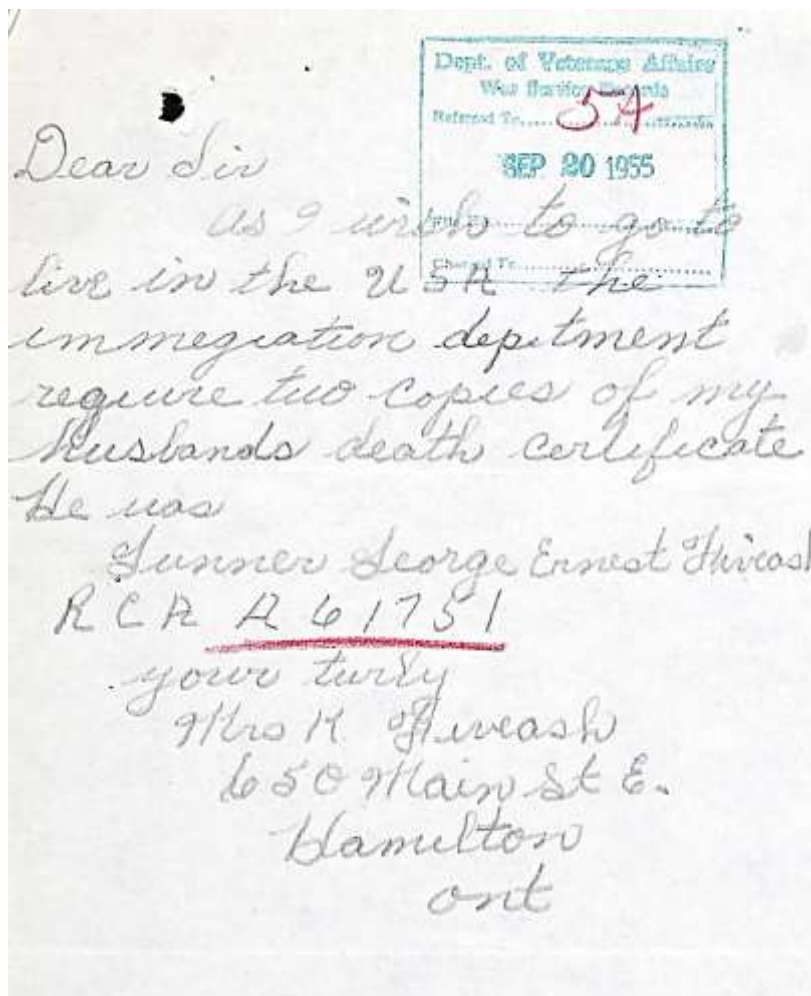 Dept. of Veterans Affairs
War Service Records
Referred To
54
SEP 20 1955
Charged To
Dear Sir
as I wish to go to
live in the USA the
immegration depitment
require two copies of my
husbands death certificate
He was
Gunner George Ernest Fiveash
RCA A61751
your turly
Mrs K Fiveash
650 Main St E.
Hamilton
ont